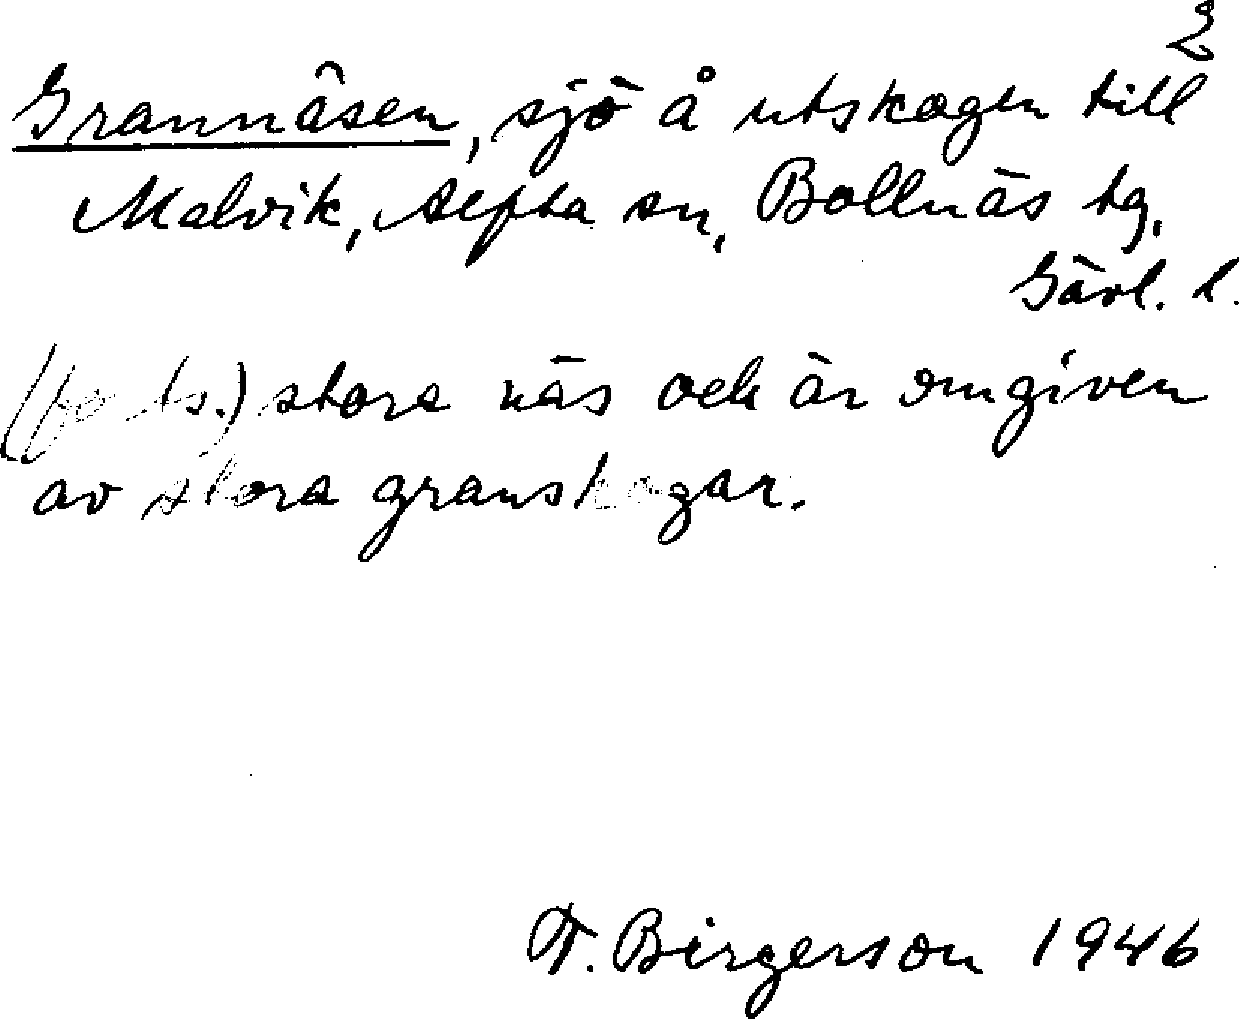 2
Grannäsen, sjö å utskogen till
Malvik, Alfta sn, Bollnäs tg,
Gävl. l.
(forts.) stora näs och är omgiven
av stora granskogar.
T. Birgerson 1946